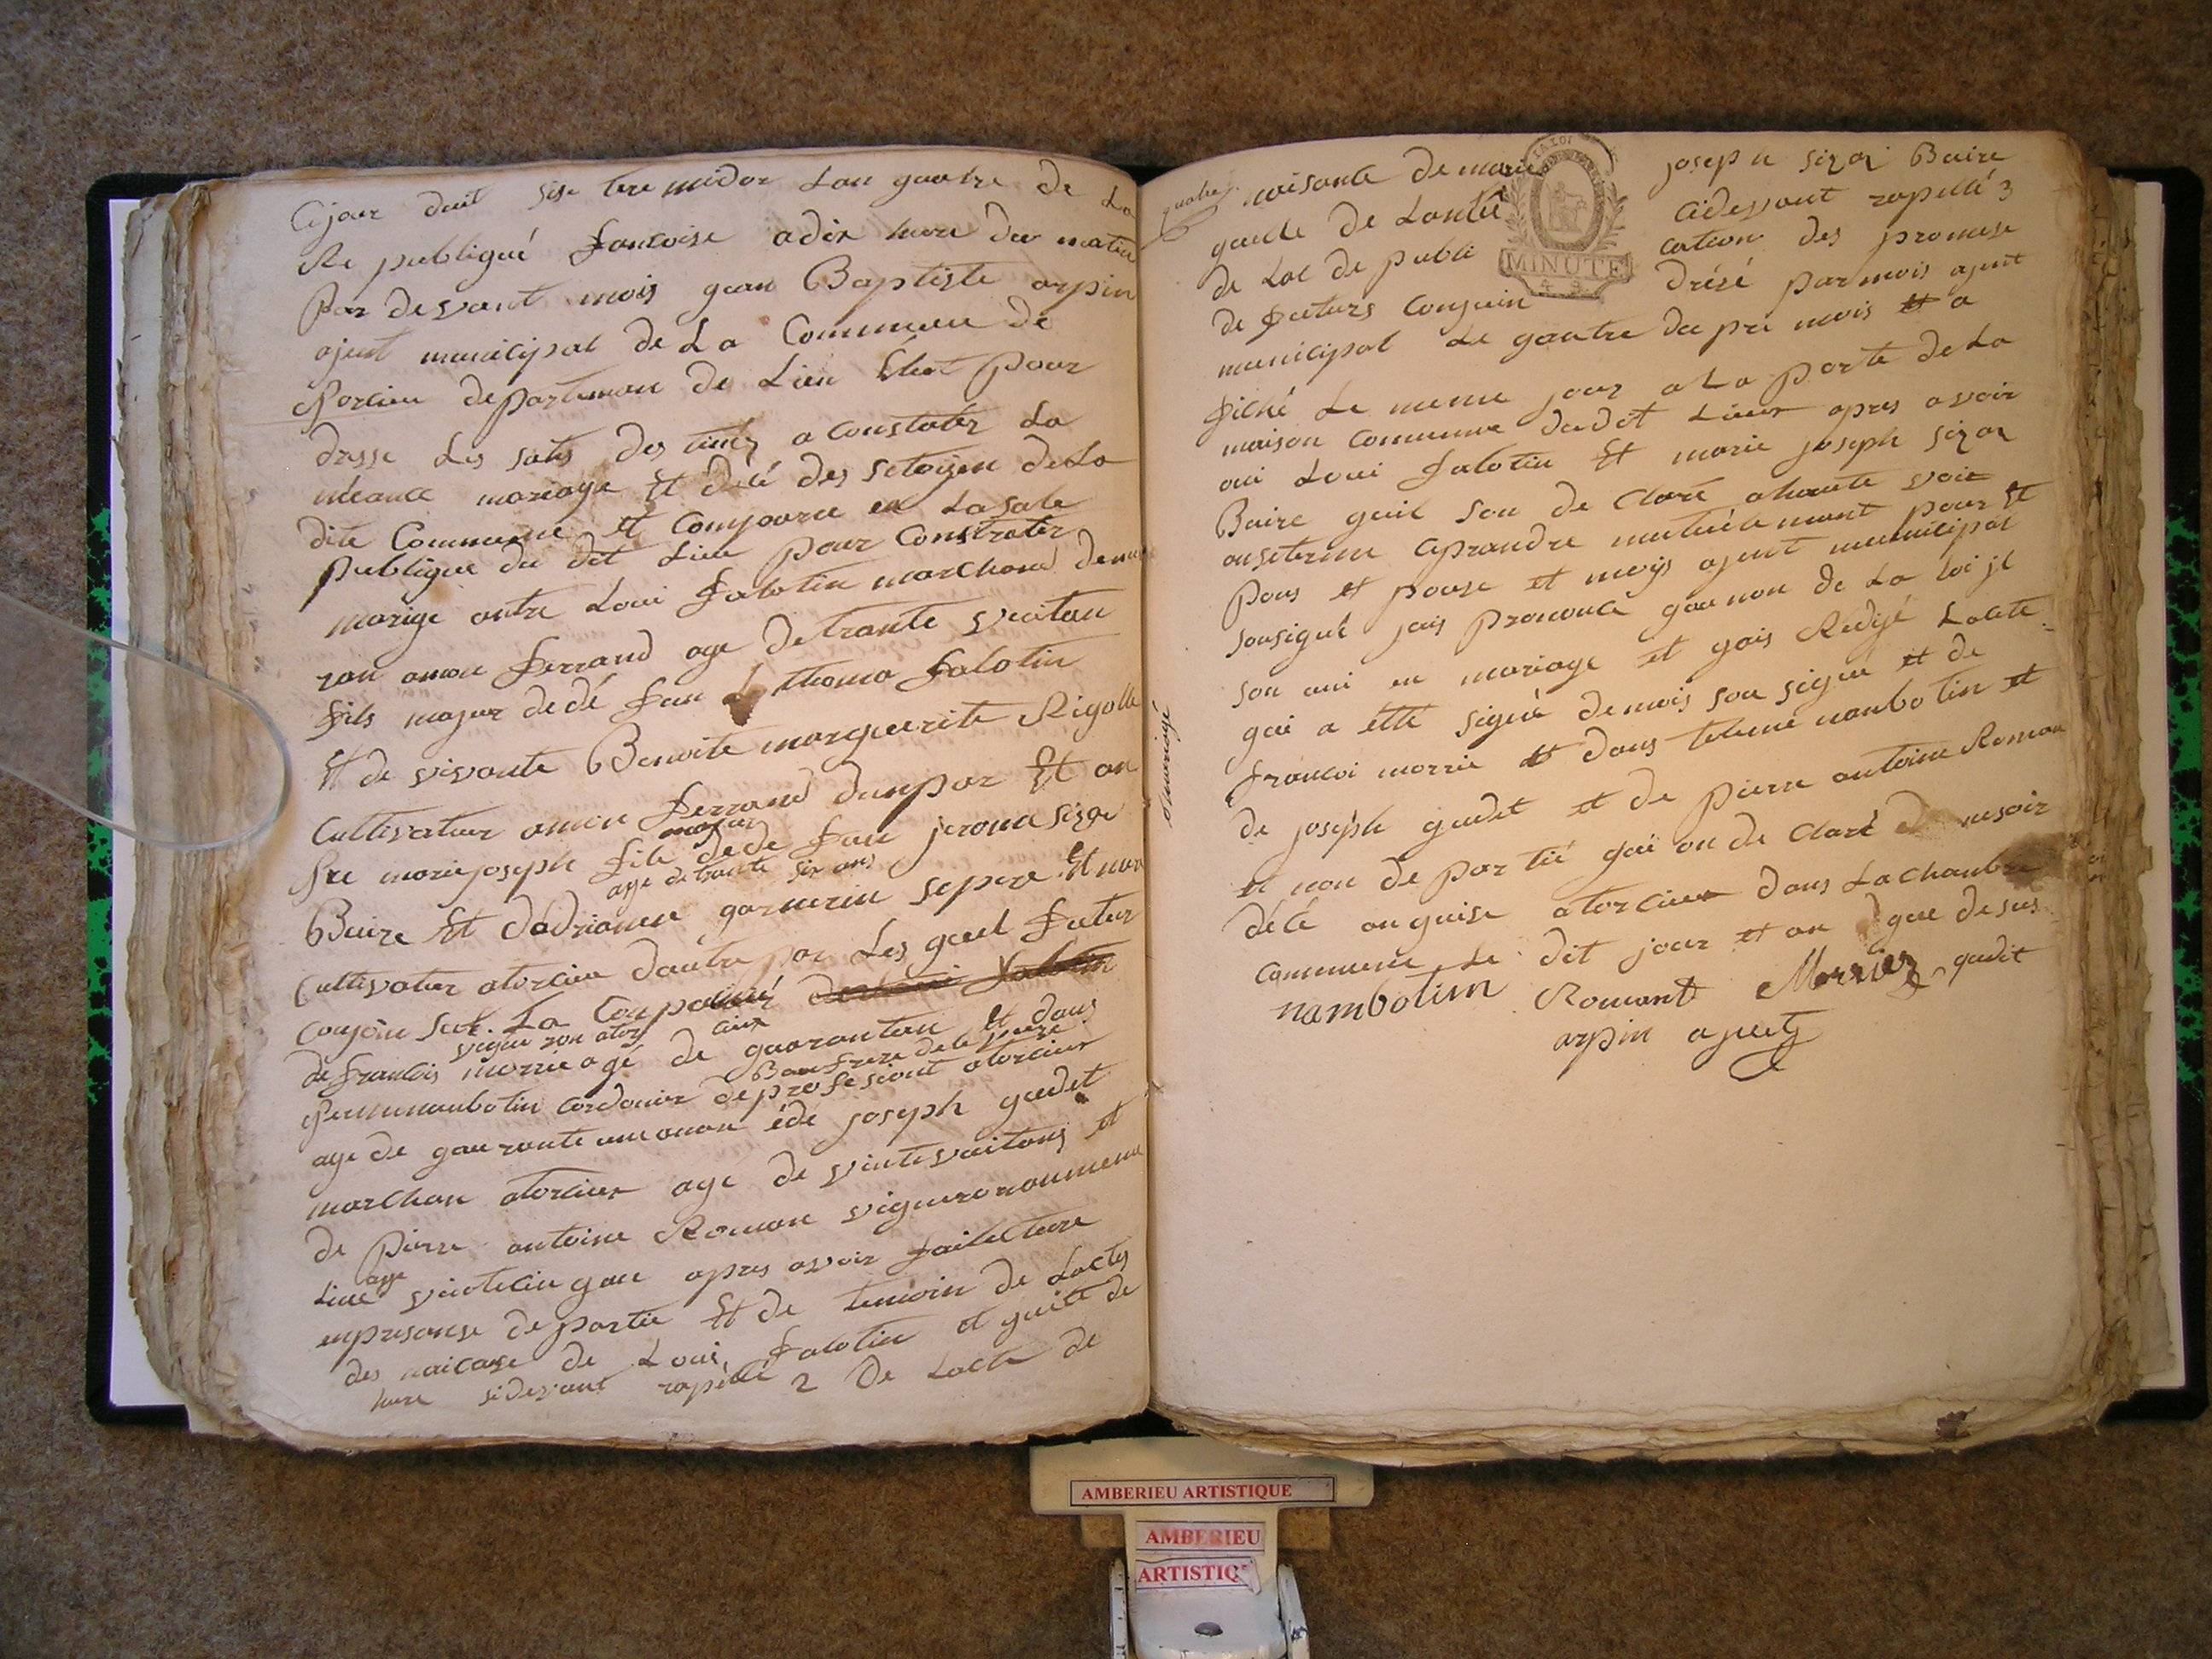 Cejour duit sise teremidor Lan quatre de La
Re publiqué francoise adix hure du matin
Par devant mois gean Baptiste arpin
ajent municipal de La Commune de
torcieu departeman de Lien Elut pour
dresse Les sates des tinés a Constater La
néance mariage Et dété des setoijen deLa
dite Commune et Comparu en Lasale
publique du dit Lieu pour Constrater
marige antre Loui falotin marchand demeu
ran amon ferrand age detrante vuitan
fils majur dedé fun thoma falotin
Et de vivante Benoite marguerite Rigolle
Cultivateur amon ferrand dunpar Et an
tre marie joseph file dede fun jerome sizar
majur
age de trante six ans
Buire Et dadrianne garnerin sepere Et mere
Cultivateur atorcieu dautre par Les quel futur
Conjoin sut. La Conpaniné falotin
vigne ron ator cieu
de francois morrie agé de quarantan Et dans
Beaufrere dela
nanbotin Cordonier de profesiont atorcieu
age de gauranteunanan éde joseph gudet
marchan atorcieu age de vintevuitans et
de Pierre antoine Roman vigneronaumeme
age
Lieu vintecin gan apres avoir failecture
enpresanse departie Et de temoin de Lactes
des naicanse de Loui falotin et guitte de
hure sidevant rapellé 2 De Lacte de
dumariagé
quatre
naisante de marie joseph sizar Buire
gaulle de Lantié cidevant rapellé 3
de Lac de publi cation des promese
de futurs Conjoin drésé parmois ajent
municipal Le gautre du pré mois et a
fiché Le meme jour a La porte de La
maison Commune dudit Lieux apres avoir
oui Loui falotin Et marie joseph sizar
Buire quil son de Claré ahaute voie
anseterme aprandre mutuélemant pour Et
pous et pouse et moijs ajent municipal
sousigné jais Prononcé gau non de La loi jl
son uni en mariage et gais Redijé Lacte
qui a étté signé demois sou signé et de
francoi morrie et dans teleme nanbotin et
de joseph gudet et de pierre antoine Roman
et non de partié qui on de Claré nesavoir
dété anguise atorcieu dans La Chambre
Commune Le dit jour et an que desus
nambotin Romant Morriez gudit
arpin ajent
LA LOI
MINUTE
AMBERIEU ARTISTIQUE
AMBERIEU
ARTISTIQ